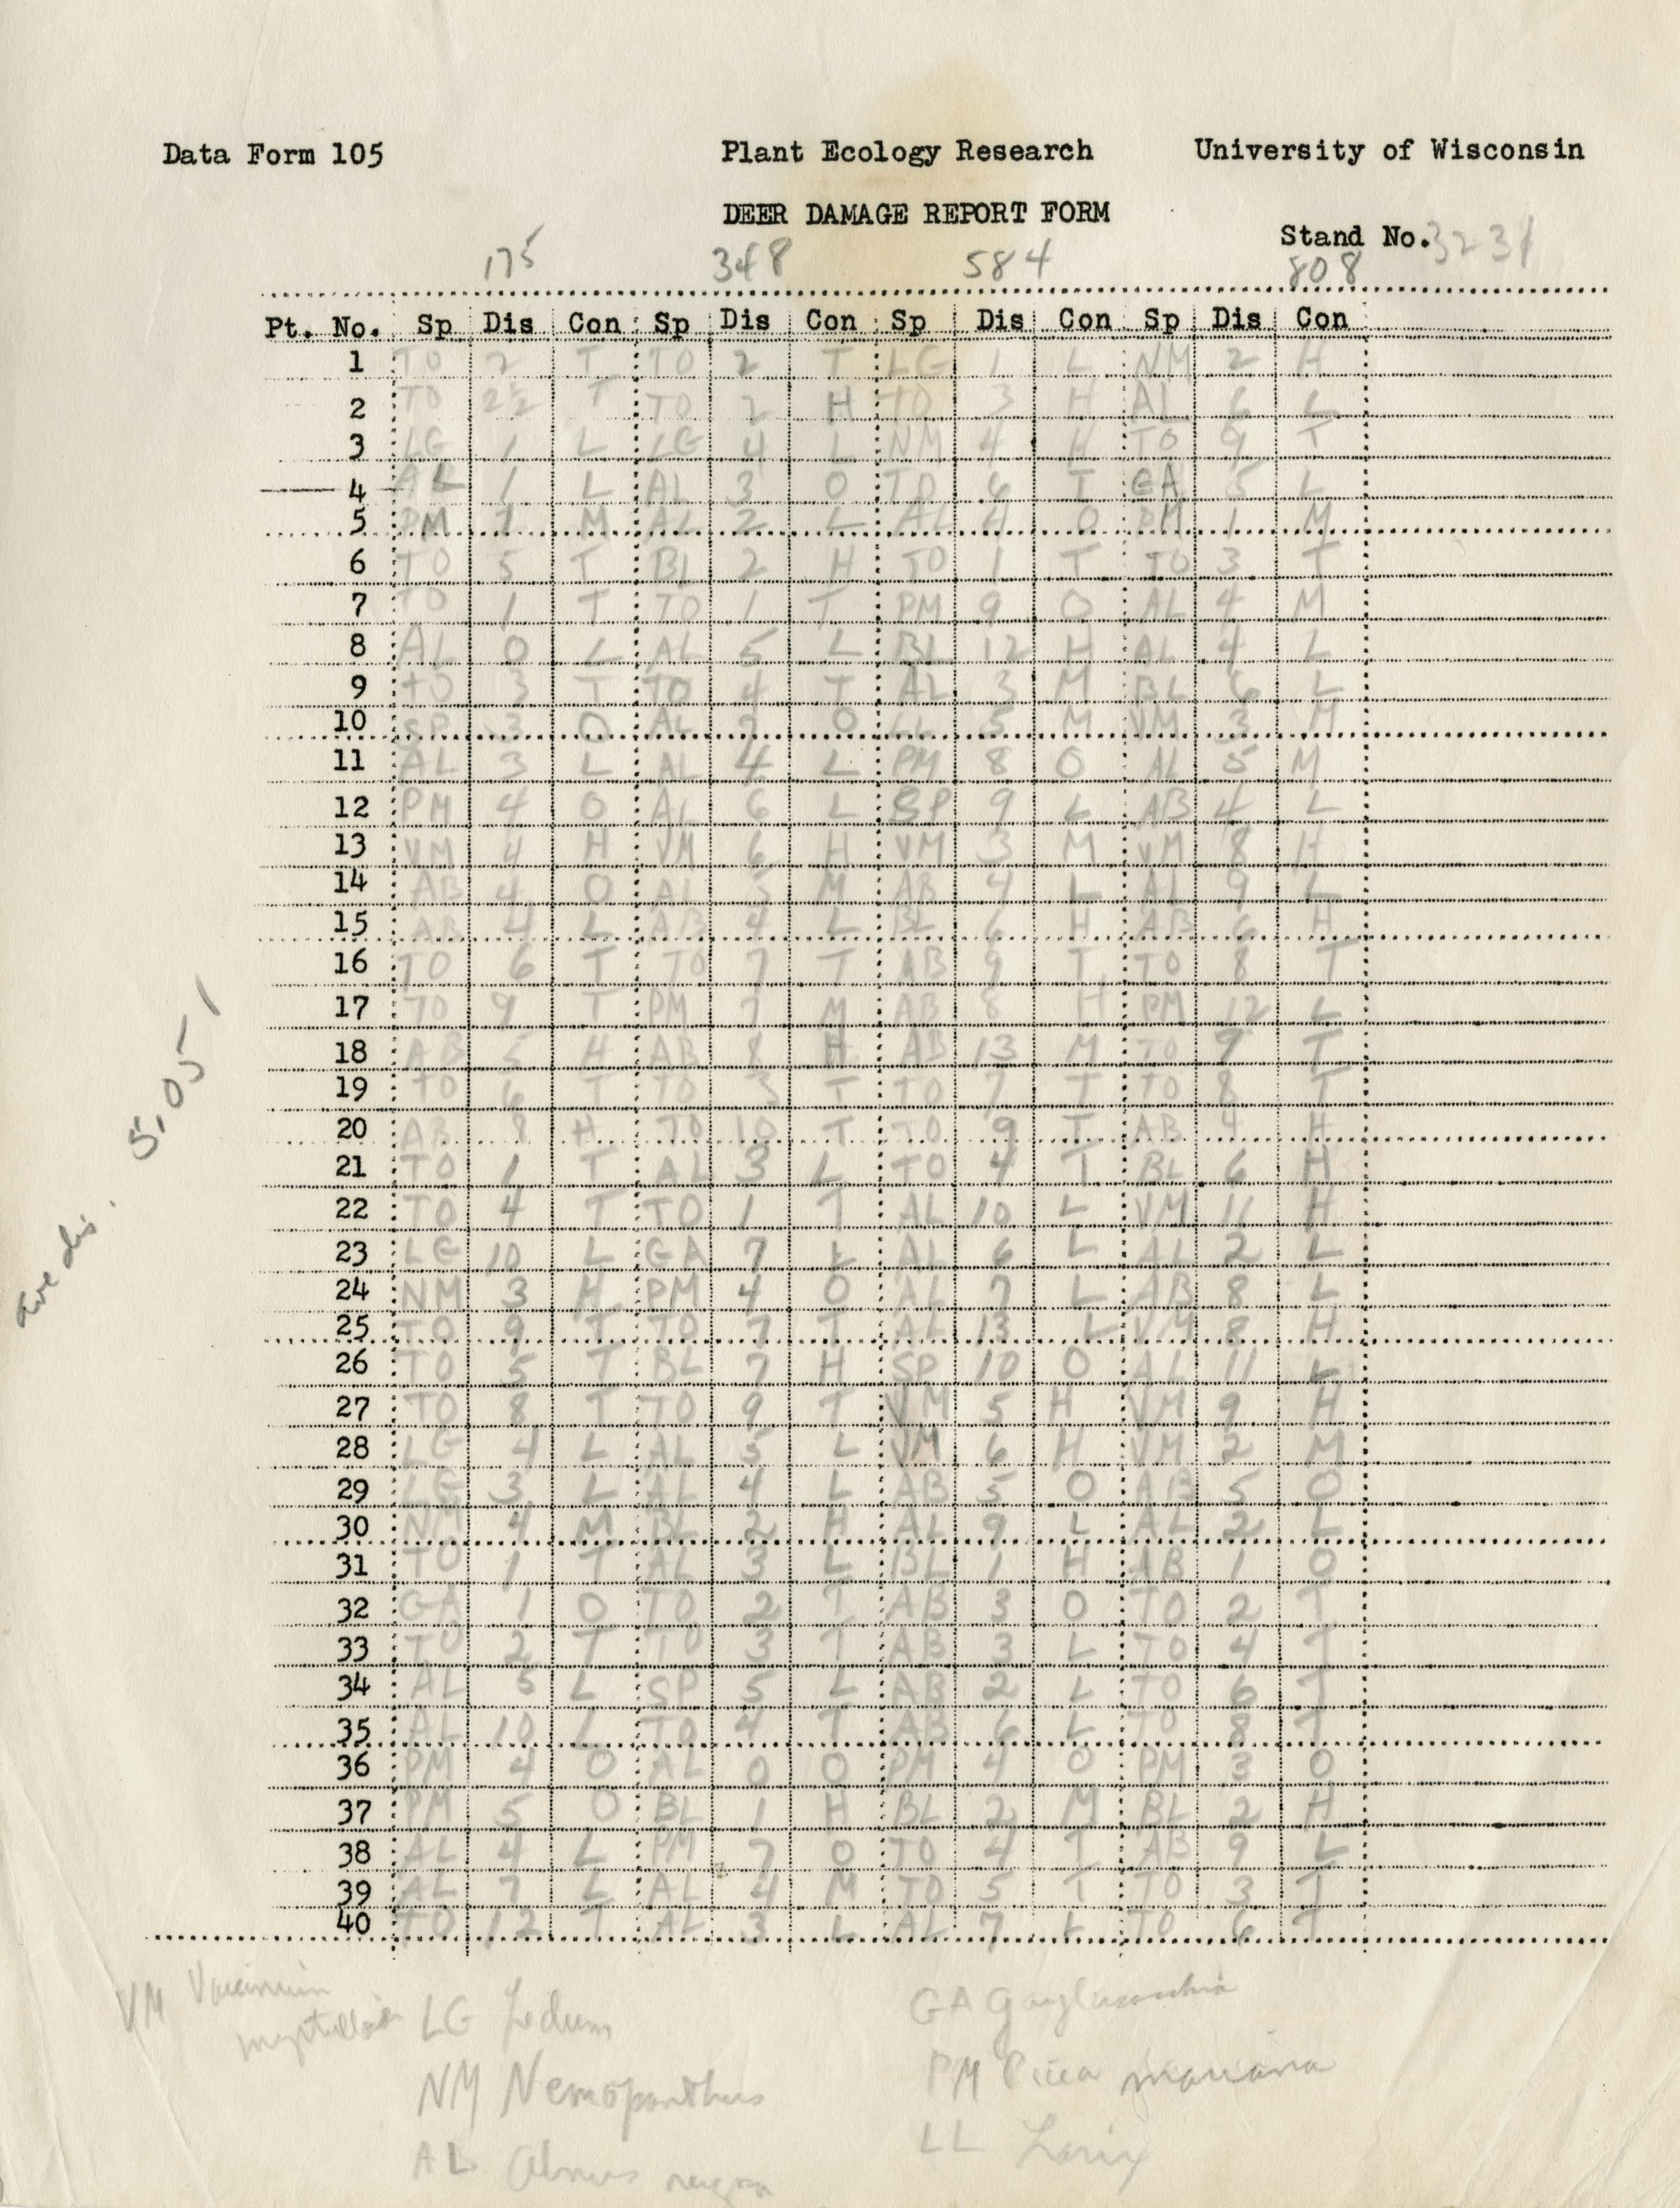 Data Form 105 Plant Ecology Research University of Wisconsin
DEER DAMAGE REPORT FORM
Stand No. 3231
175 348 584 808
Pt. No. Sp Dis Con Sp Dis Con Sp Dis Con Sp Dis Con
1 TO 2 T TO 2 T LG 1 L NM 2 H
2 TO 2½ T TO 2 H TO 3 H AL 6 L
3 LG 1 L LG 4 L NM 4 H TO 9 T
4 AL 1 L AL 3 O TO 6 T GA 5 L
5 PM 7 M AL 2 L AL 4 O PM 1 M
6 TO 5 T BL 2 H TO 1 T TO 3 T
7 TO 1 T TO 1 T PM 9 O AL 4 M
8 AL 0 L AL 5 L BL 12 H AL 4 L
9 TO 3 T TO 4 T AL 3 M BL 6 L
10 SP 3 O AL 7 O LL 5 M VM 3 M
11 AL 3 L AL 4 L PM 8 O AL 5 M
12 PM 4 O AL 6 L SP 9 L AB 4 L
13 VM 4 H VM 6 H VM 3 M VM 8 H
14 AB 4 O AL 5 M AB 4 L AL 9 L
15 AB 4 L AB 4 L BL 6 H AB 6 H
16 TO 6 T TO 7 T AB 9 T TO 8 T
17 TO 9 T PM 7 M AB 8 H PM 12 L
18 AB 5 H AB 8 H AB 13 M TO 9 T
19 TO 6 T TO 3 T TO 7 T TO 8 T
20 AB 8 H TO 10 T TO 9 T AB 9 H
21 TO 1 T AL 3 L TO 4 T BL 6 H
22 TO 4 T TO 1 T AL 10 L VM 11 H
23 LG 10 L GA 7 L AL 6 L AL 2 L
24 NM 3 H PM 4 O AL 7 L AB 8 L
25 TO 9 T TO 7 T AL 13 L VM 8 H
26 TO 5 T BL 7 H SP 10 O AL 11 L
27 TO 8 T TO 9 T VM 5 H VM 9 H
28 LG 4 L AL 5 L VM 6 H VM 2 M
29 LG 3 L AL 4 L AB 5 O AB 5 O
30 NM 4 M BL 2 H AL 9 L AL 2 L
31 TO 1 T AL 3 L BL 1 H AB 1 O
32 GA 1 O TO 2 T AB 3 O TO 2 T
33 TO 2 T TO 3 T AB 3 L TO 4 T
34 AL 5 L SP 5 L AB 2 L TO 6 T
35 AL 10 L TO 4 T AB 6 L TO 8 T
36 PM 4 O AL 0 O PM 4 O PM 3 O
37 PM 5 O BL 1 H BL 2 M BL 2 H
38 AL 4 L PM 7 O TO 4 T AB 9 L
39 AL 7 L AL 4 M TO 5 T TO 3 T
40 TO 12 T AL 3 L AL 7 L TO 6 T
Ave dis. 5.051
VM Vaccinium
LG Ledum
GA Gaylussachia
NM Nemopanthus
PM Picea mariana
AL Alnus rugosa
LL Larix